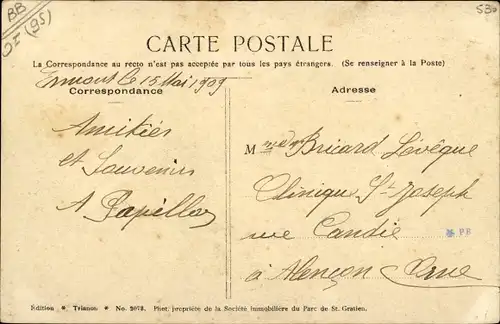 BB
OI (95)
530
CARTE POSTALE
La Correspondance au recto n'est pas acceptée par tous les pays étrangers. (Se renseigner à la Poste)
Ermont le 15 Mai 1909
Correspondance
Adresse
Amitiés
et Souvenirs
A Papillon
Mme Bricard Lévêque
Clinique St Joseph
rue Candie
PB
à Alençon Orne
Edition * Trianon * No. 2073. Phot. propriété de la Société Immobilière du Parc de St. Gratien.